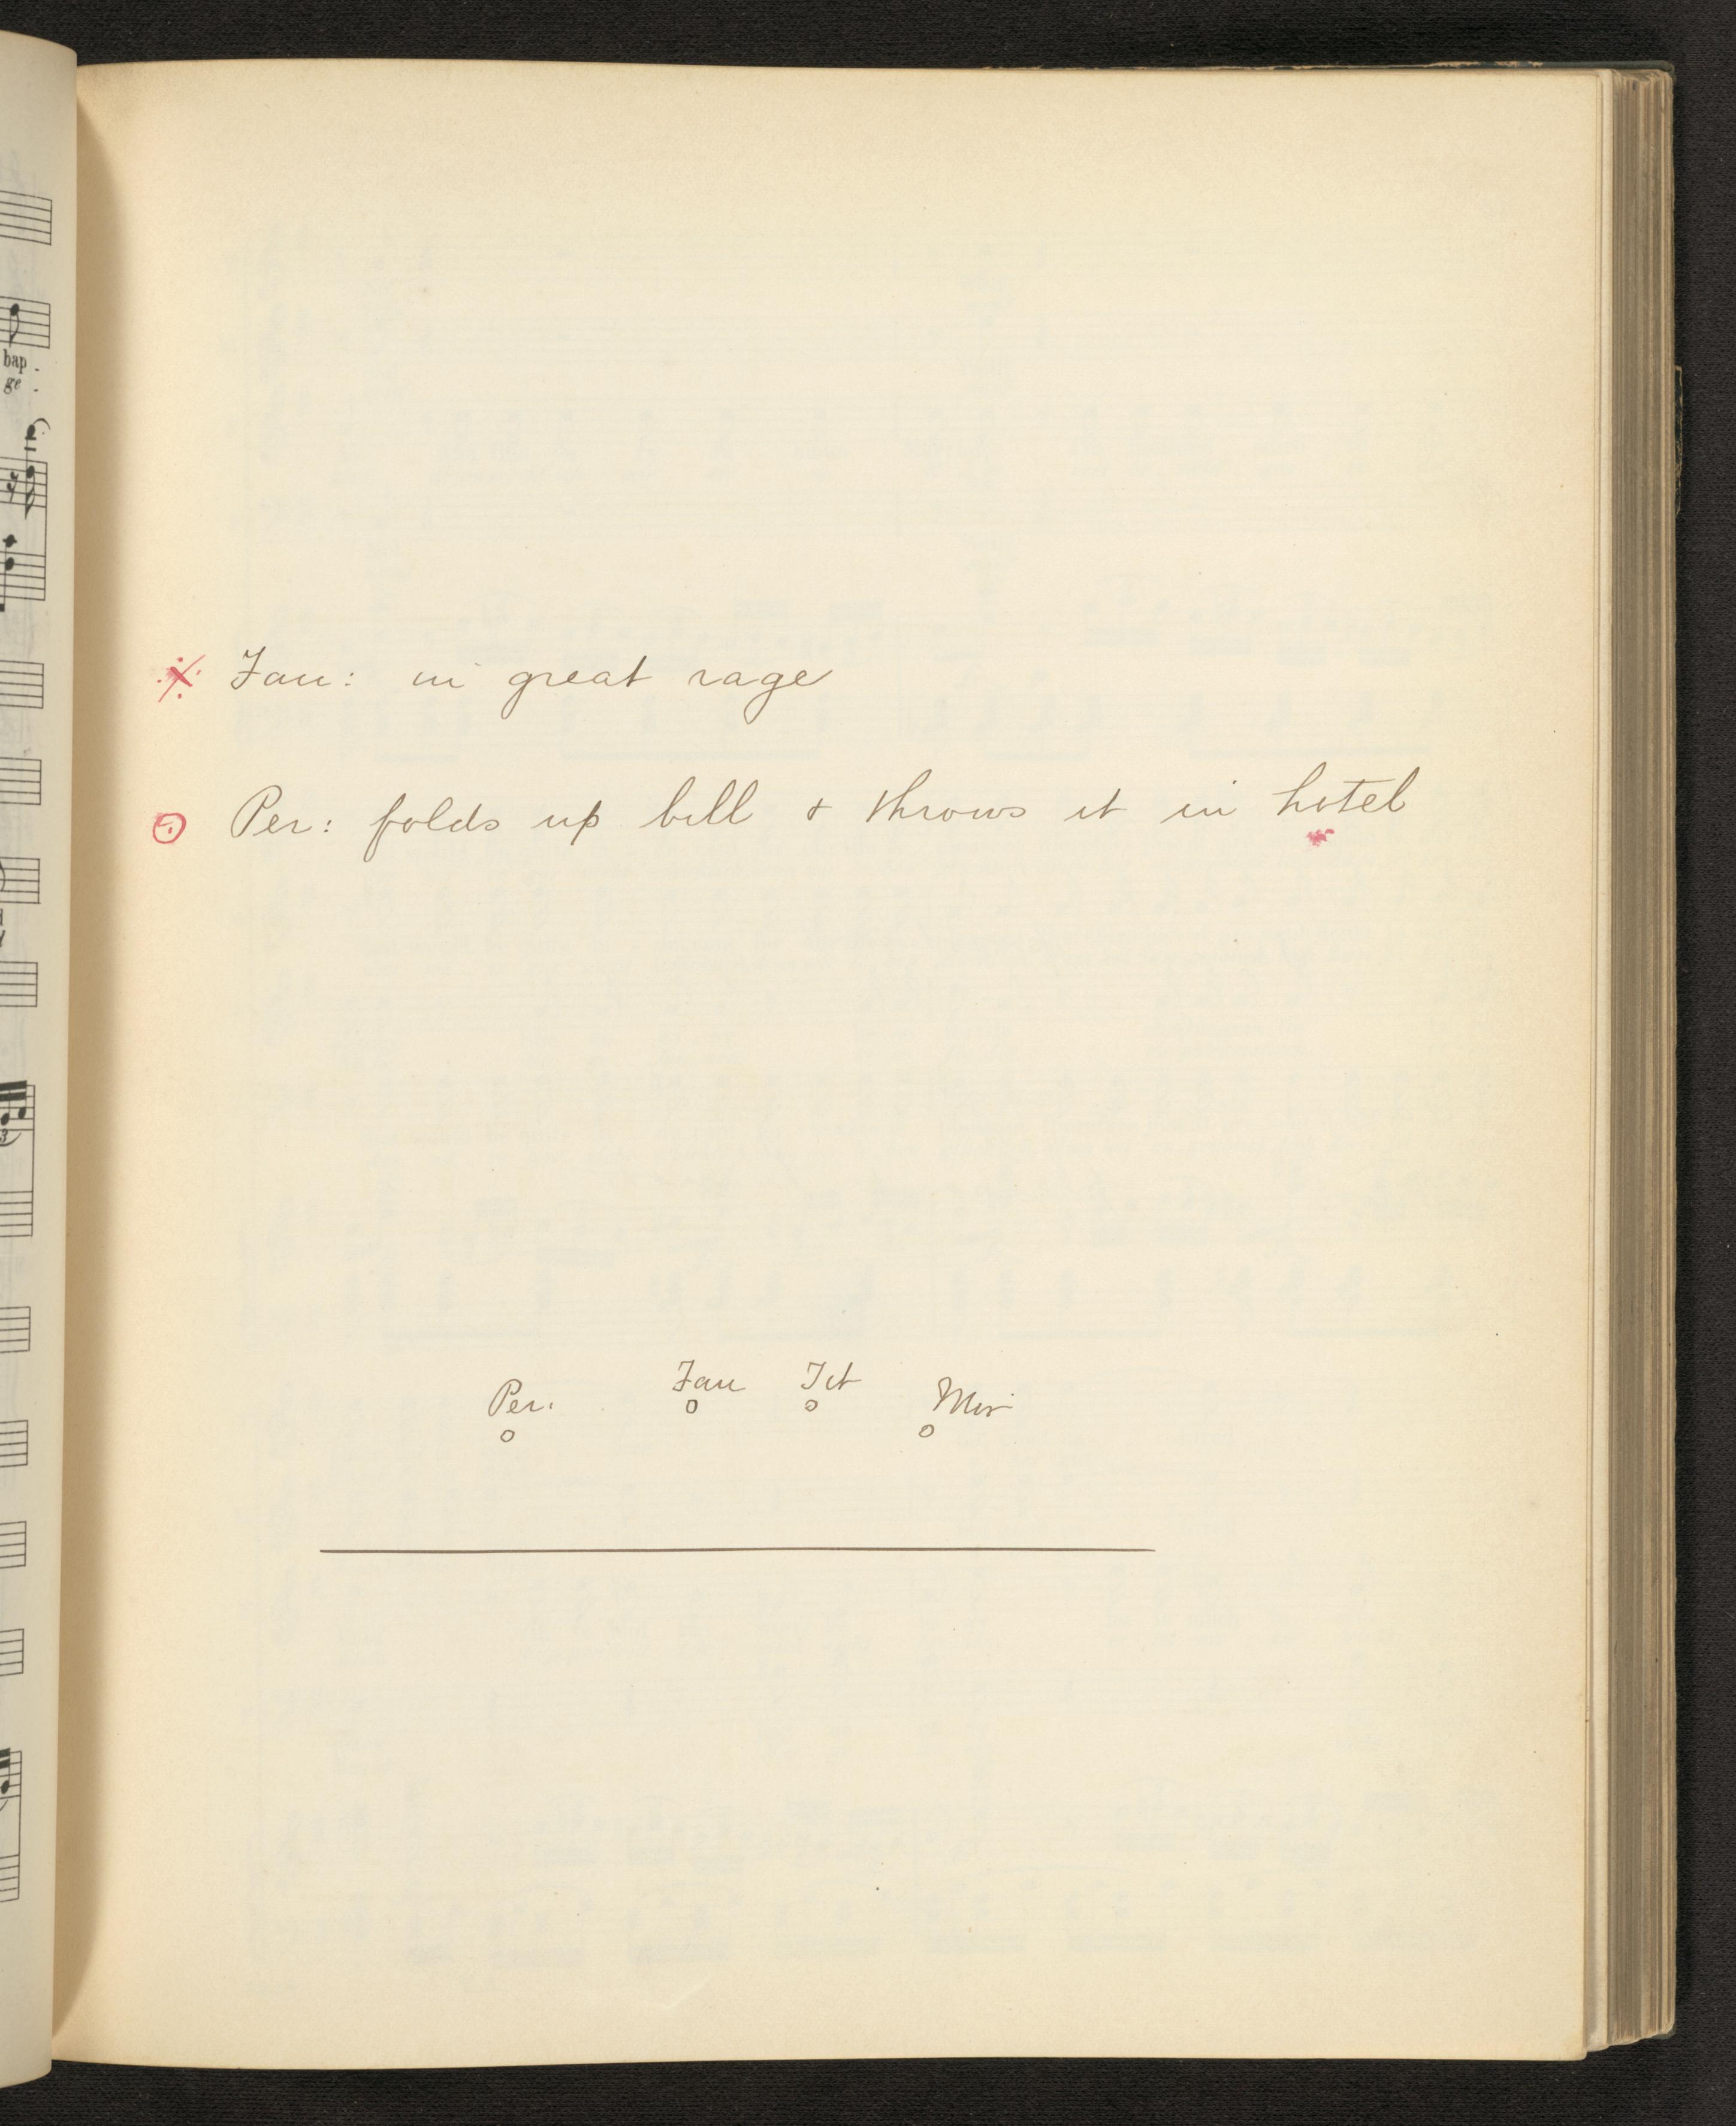 bap -
ge -
3
Fau: in great rage
Per: folds up bill & throws it in hotel
Per. Fau Tit Mir